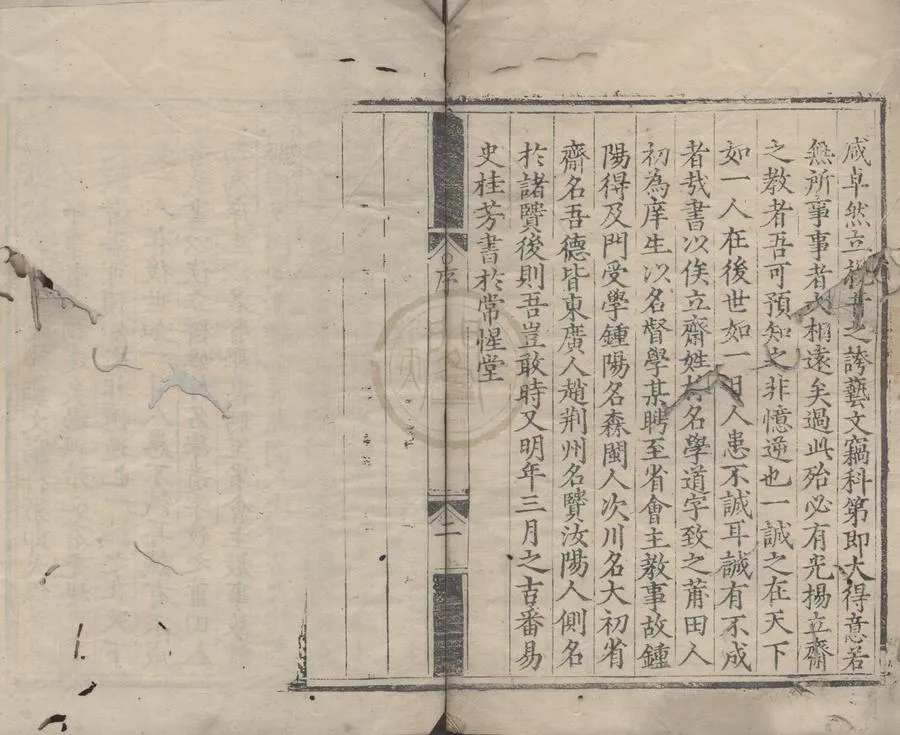 咸卓然立視世之誇藝文竊科第即大得意若
無所事事者大相遠矣過此殆必有光揚立齋
之教者吾可預知之非憶逆也一誠之在天下
如一人在後世如一日人患不誠耳誠有不成
者㢤書以俟立齋姓林名學道字致之莆田人
初為庠生以名督學某聘至省會主教事故鍾
陽得及門受學鍾陽名森閩人次川名大初省
齋名吾德皆東廣人趙荆州名賢汝陽人側名
於諸賢後則吾豈敢時又明年三月之吉番易
史桂芳書於常惺堂
序
二